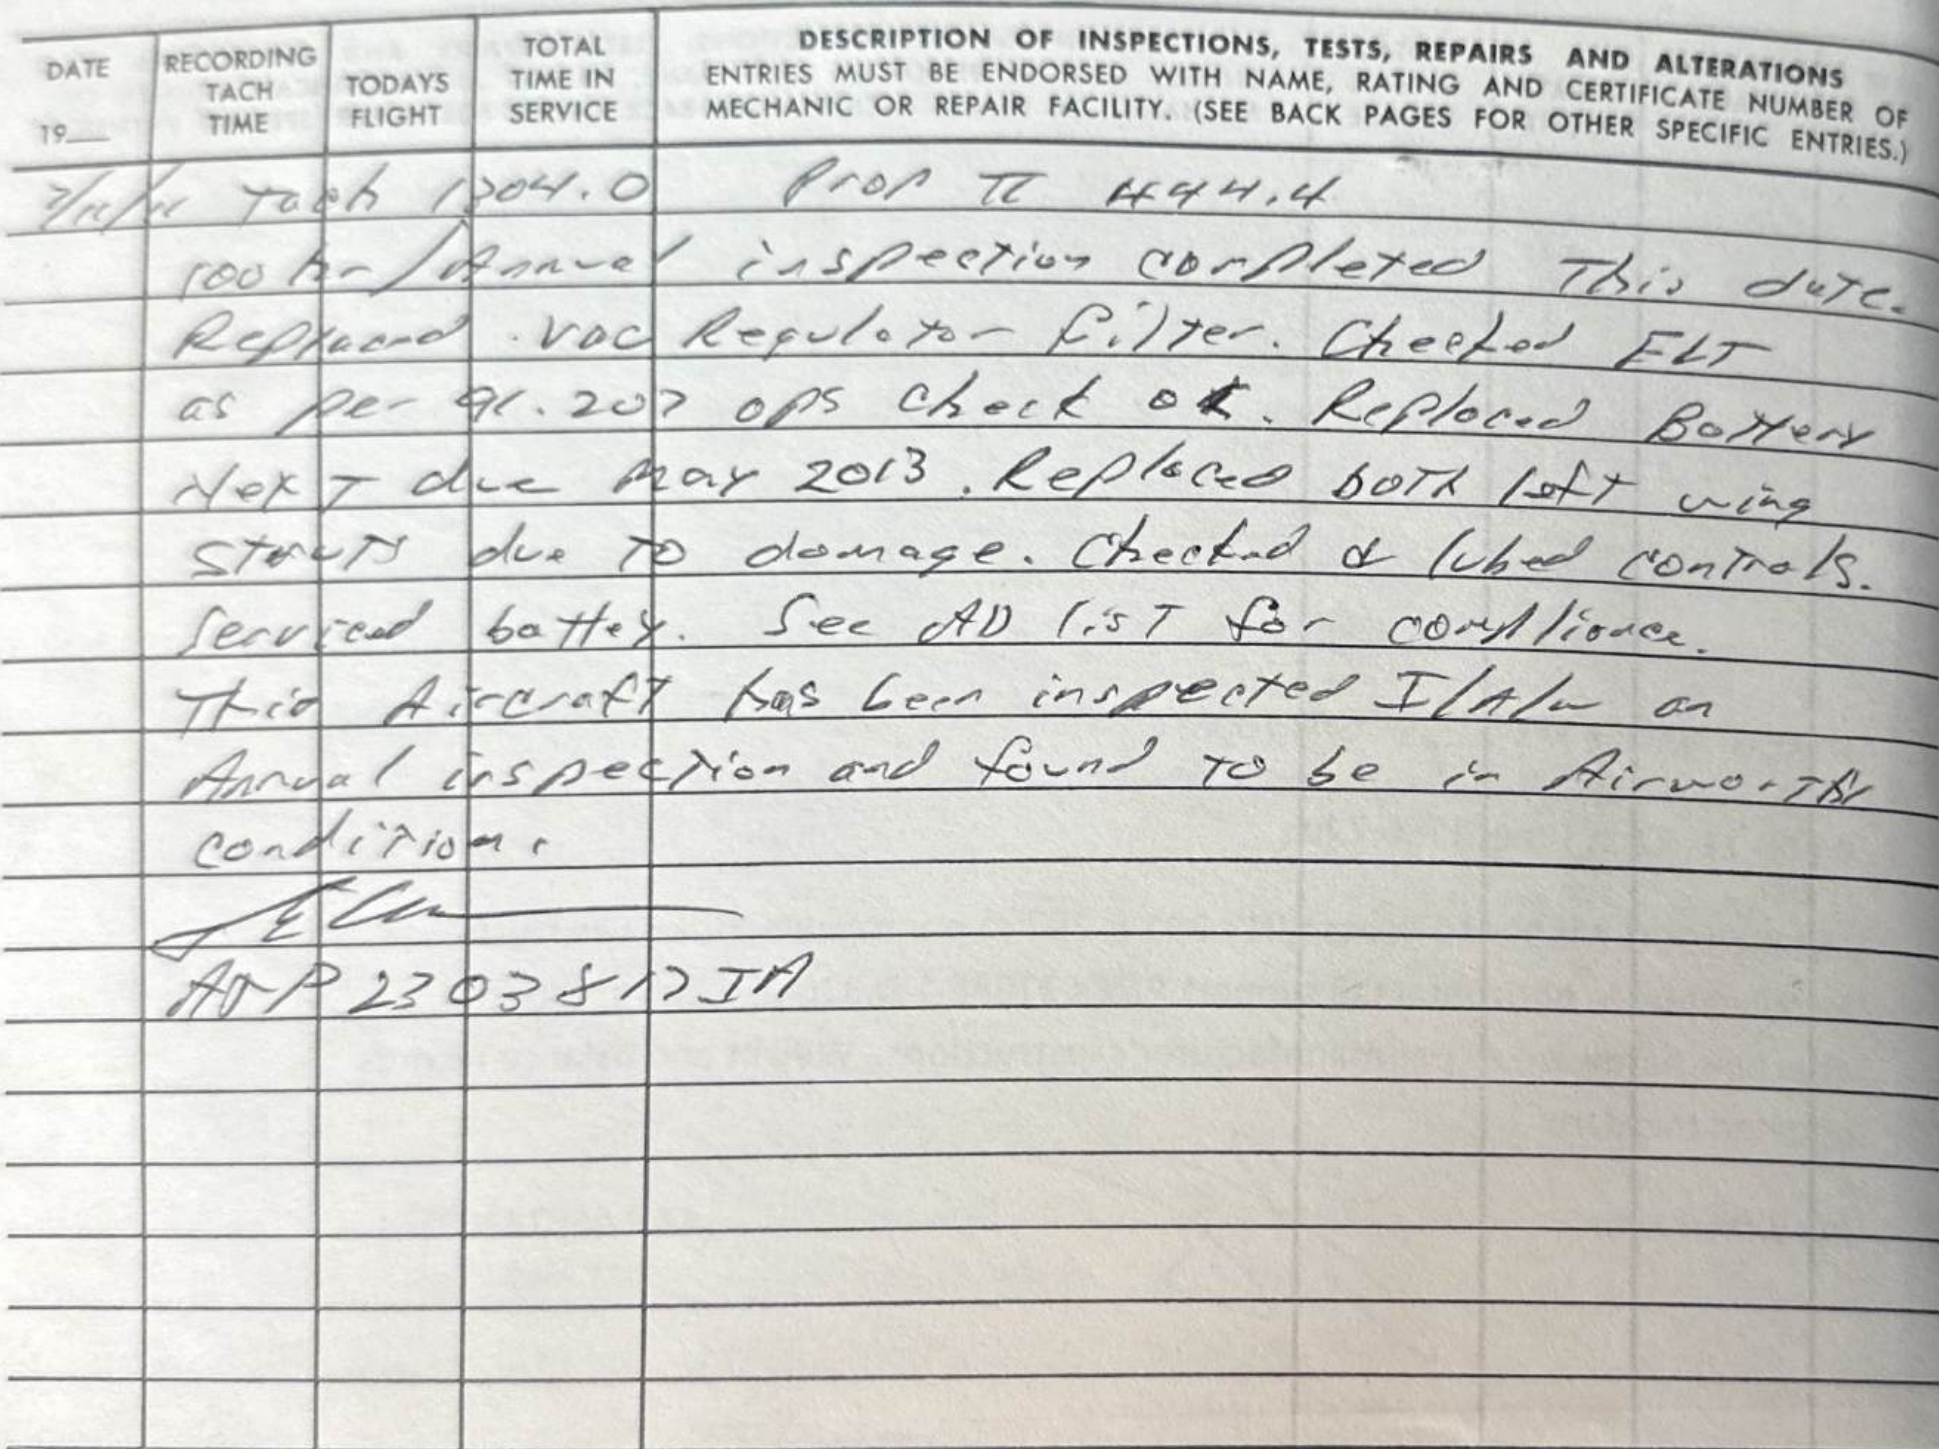 DATE
19__
RECORDING
TACH
TIME
TODAYS
FLIGHT
TOTAL
TIME IN
SERVICE
DESCRIPTION OF INSPECTIONS, TESTS, REPAIRS AND ALTERATIONS
ENTRIES MUST BE ENDORSED WITH NAME, RATING AND CERTIFICATE NUMBER OF
MECHANIC OR REPAIR FACILITY. (SEE BACK PAGES FOR OTHER SPECIFIC ENTRIES.)
Tach 1304.0 Prop TT 444.4
100 hr/Annual inspection completed This date.
Replaced Vac Regulator filter. Checked ELT
as per 91.207 ops check ok. Replaced Battery
Next due May 2013. Replaced both left wing
struts due to damage. Checked & lubed controls.
Serviced battey. See AD list for compliance.
This Aircraft has been inspected I/A/w an
Annual inspection and found to be in Airworthy
condition.
A&P 2303817 IA